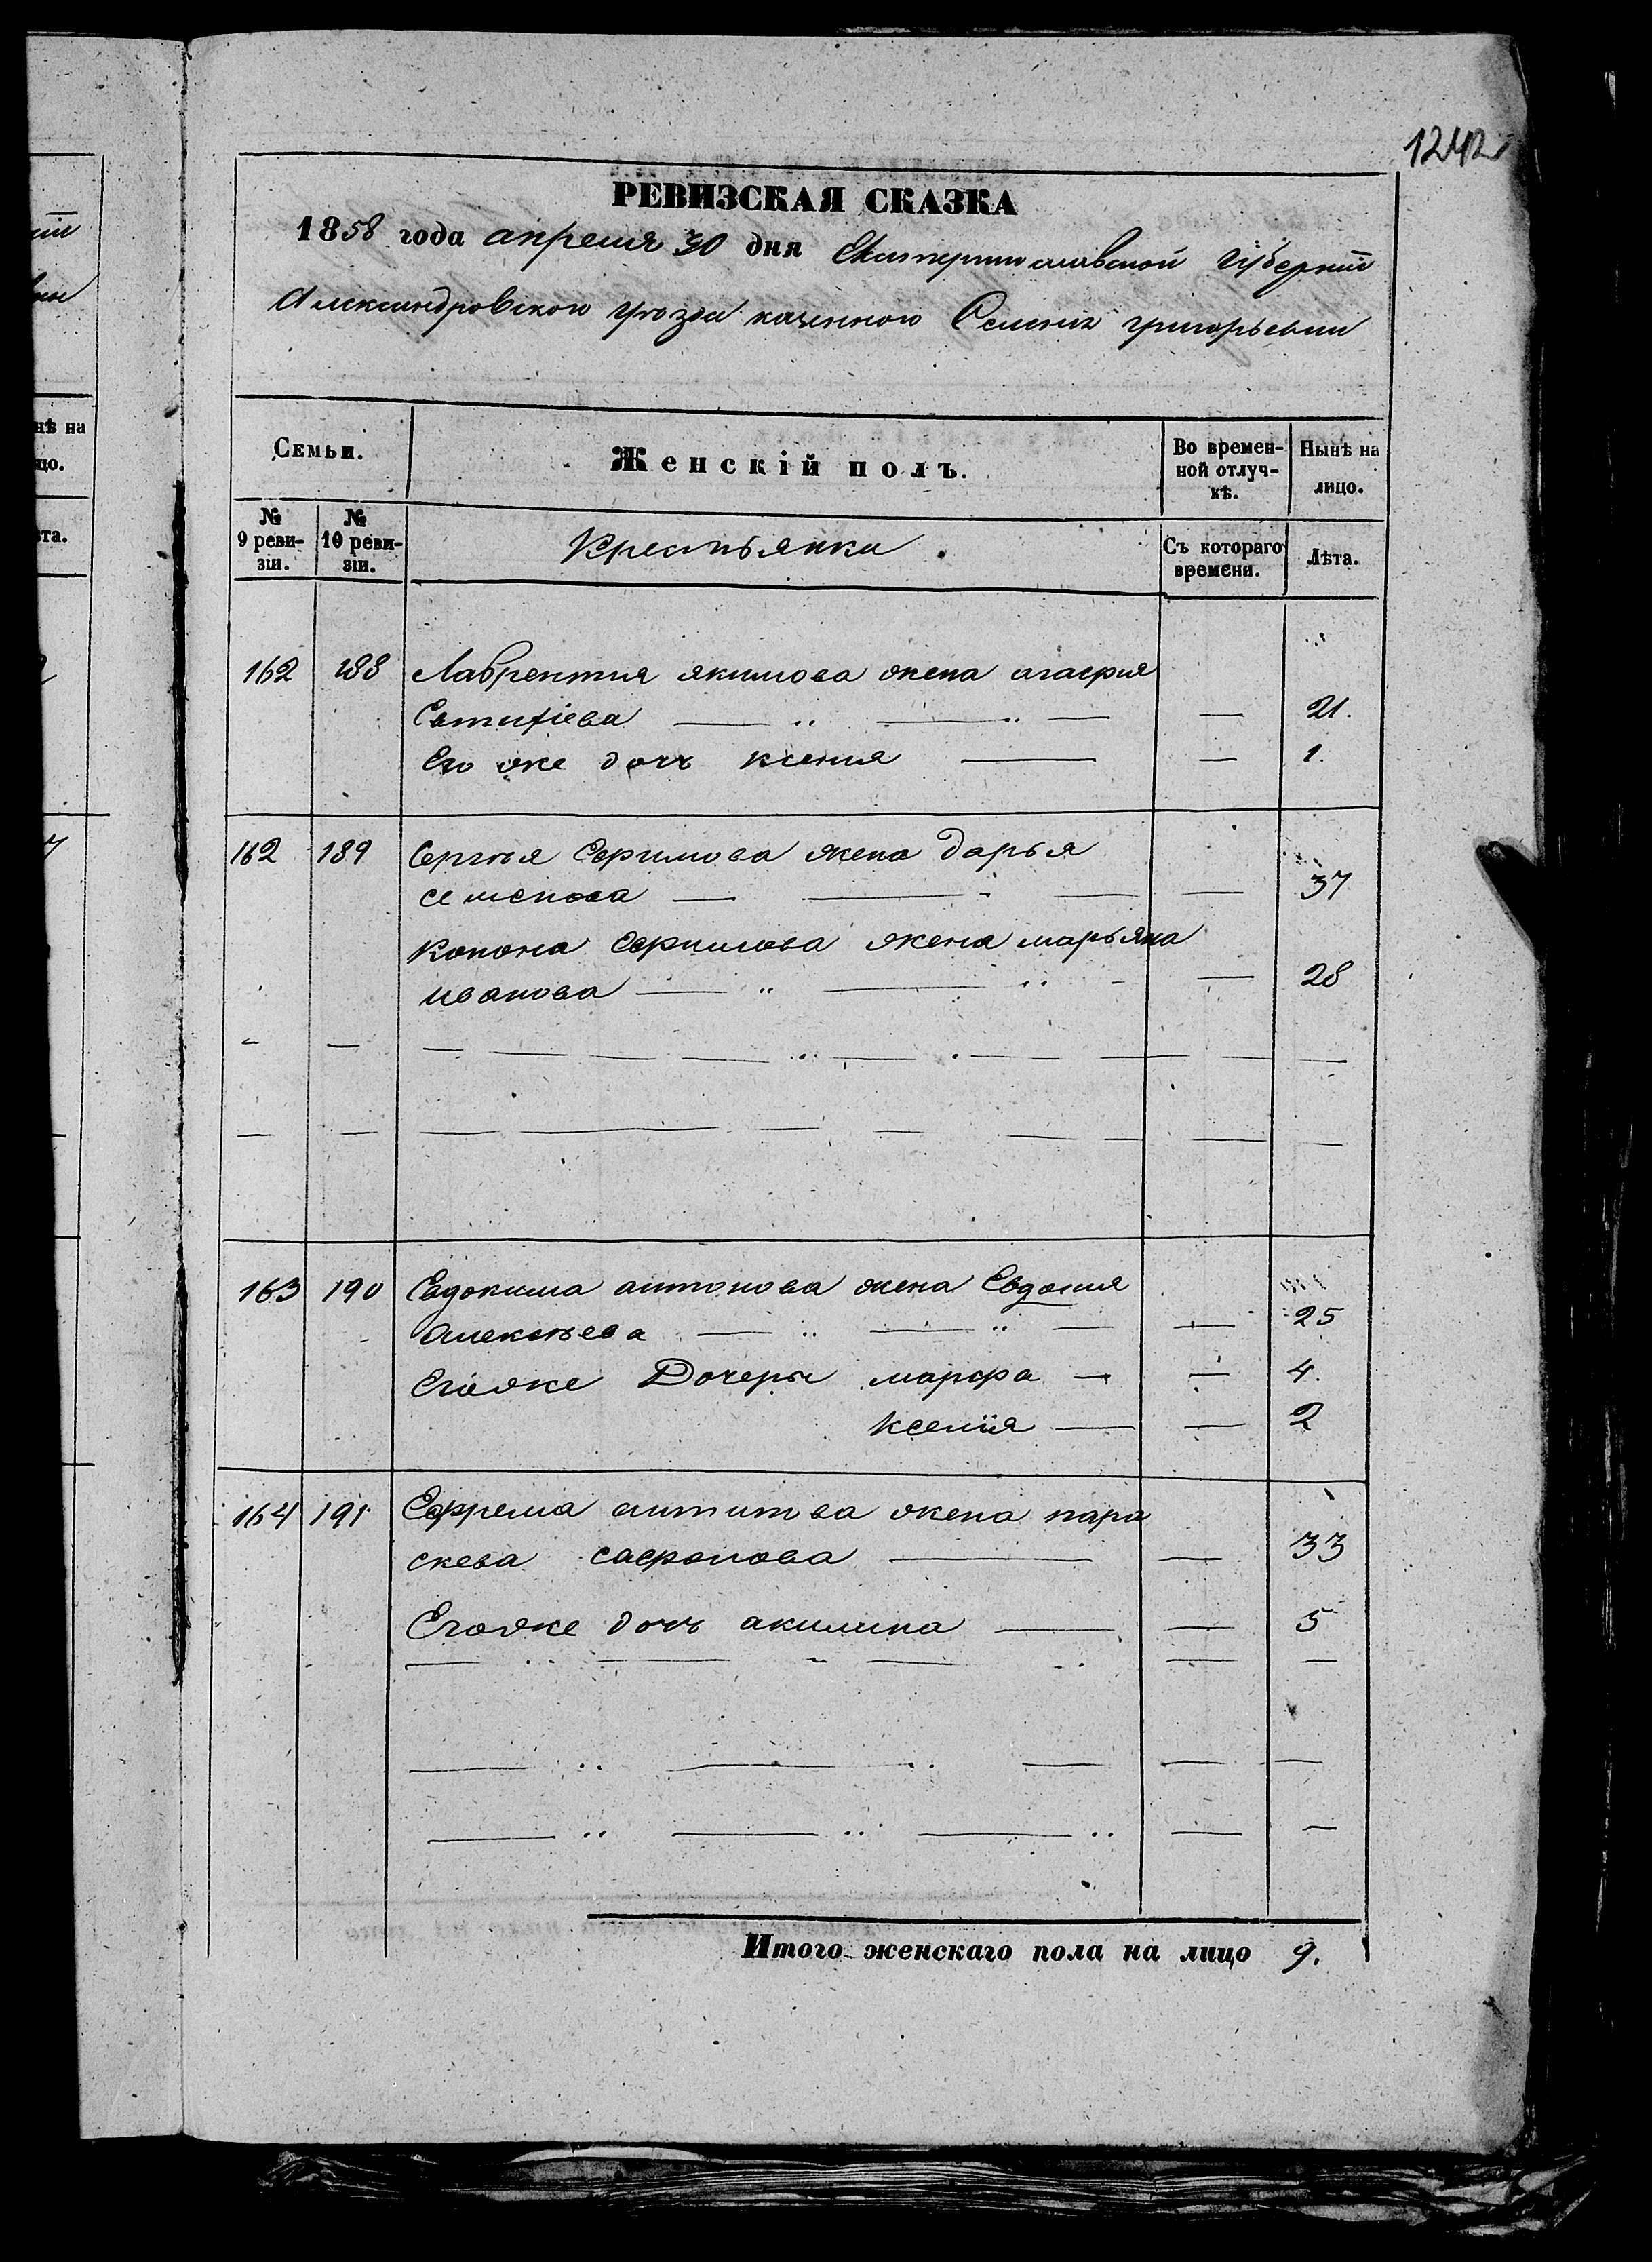 1242
РЕВИЗСКАЯ СКАЗКА
1858 года апреля 30 дня Екатеринославской Губерніи
Александровского уѣзда казенной Селенія григорьевки
Семьи.
Женскій полъ.
Во времен-
ной отлуч-
кѣ.
Нынѣ на
лицо.
№
9 реви-
зіи.
№
10 реви-
зіи.
Крестьянка
Съ котораго
времени.
Лѣта.
162 188 Лаврентия якимова жена агафия
Евтифіева — — 21.
Его же дочь ксения — — 1.
162 189 Сергѣя Ефимова жена Дарья
семенова — — — — 37
Конона Ефимова жена марьяна
иванова — — — 28
163 190 Евдокима антонова жена Евдокия
Алексѣева — — — — 25
Егоже Дочери марфа — — 4.
Ксенія — — 2
164 191 Ефрема антипова жена пара
скева сафонова — — 33
Егоже дочь акилина — — 5
Итого женскаго пола на лицо 9.
нѣ на
цо.
та.